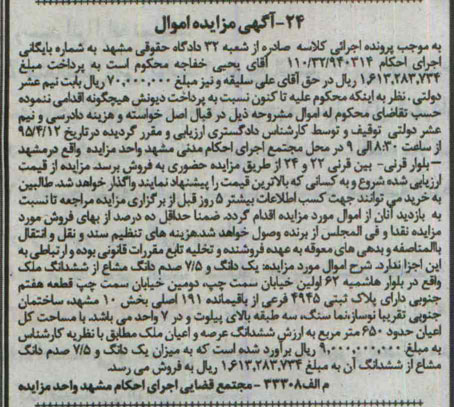 ۲۴-آگهی مزایده اموال
به موجب پرونده اجرائی کلاسه صادره از شعبه ۳۲ دادگاه حقوقی مشهد به شماره بایگانی
اجرای احکام ۱۱۰/۳۲/۹۴۰۳۱۴ آقای یحیی خفاجه محکوم است به پرداخت مبلغ
۱,۶۱۳,۲۸۳,۷۳۴ ریال در حق آقای علی سلیقه و نیز مبلغ ۷۰,۰۰۰,۰۰۰ ریال بابت نیم عشر
دولتی. نظر به اینکه محکوم علیه تا کنون نسبت به پرداخت دیونش هیچگونه اقدامی ننموده
حسب تقاضای محکوم له اموال مشروحه ذیل در قبال اصل خواسته و هزینه دادرسی و نیم
عشر دولتی توقیف و توسط کارشناس دادگستری ارزیابی و مقرر گردیده در تاریخ ۹۵/۴/۱۲
از ساعت ۸:۳۰ الی ۹ در محل مجتمع اجرای احکام مدنی مشهد واحد مزایده واقع در مشهد
- بلوار قرنی- بین قرنی ۲۲ و ۲۴ از طریق مزایده حضوری به فروش برسد. مزایده از قیمت
ارزیابی شده شروع و به کسانی که بالاترین قیمت را پیشنهاد نمایند واگذار خواهد شد. طالبین
به خرید می توانند جهت کسب اطلاعات بیشتر ۵ روز قبل از برگزاری مزایده مراجعه تا نسبت
به بازدید آنان از اموال مورد مزایده اقدام گردد. ضمنا حداقل ده درصد از بهای فروش مورد
مزایده نقدا و فی المجلس از برنده وصول خواهد شد.هزینه های تنظیم سند و نقل و انتقال
بالمناصفه و بدهی های معوقه به عهده فروشنده و تخلیه تابع مقررات قانونی بوده و ارتباطی به
این اجرا ندارد. شرح اموال مورد مزایده: یک دانگ و ۷/۵ صدم دانگ مشاع از ششدانگ ملک
واقع در بلوار هاشمیه ۶۲ اولین خیابان سمت چپ، دومین خیابان سمت چپ قطعه هفتم
جنوبی دارای پلاک ثبتی ۴۹۴۵ فرعی از باقیمانده ۱۹۱ اصلی بخش ۱۰ مشهد، ساختمان
جنوبی تقریبا نوساز،نما سنگ، سه طبقه بالای پیلوت و در ۷ واحد می باشد. با مساحت کل
اعیان حدود ۶۵۰ متر مربع به ارزش ششدانگ عرصه و اعیان ملک مطابق با نظریه کارشناس
به مبلغ ۹,۰۰۰,۰۰۰,۰۰۰ ریال برآورد شده است که به میزان یک دانگ و ۷/۵ صدم دانگ
مشاع از ششدانگ آن به مبلغ ۱,۶۱۳,۲۸۳,۷۳۴ ریال به فروش می رسد.
م الف۳۳۳۰۸ - مجتمع قضایی اجرای احکام مشهد واحد مزایده